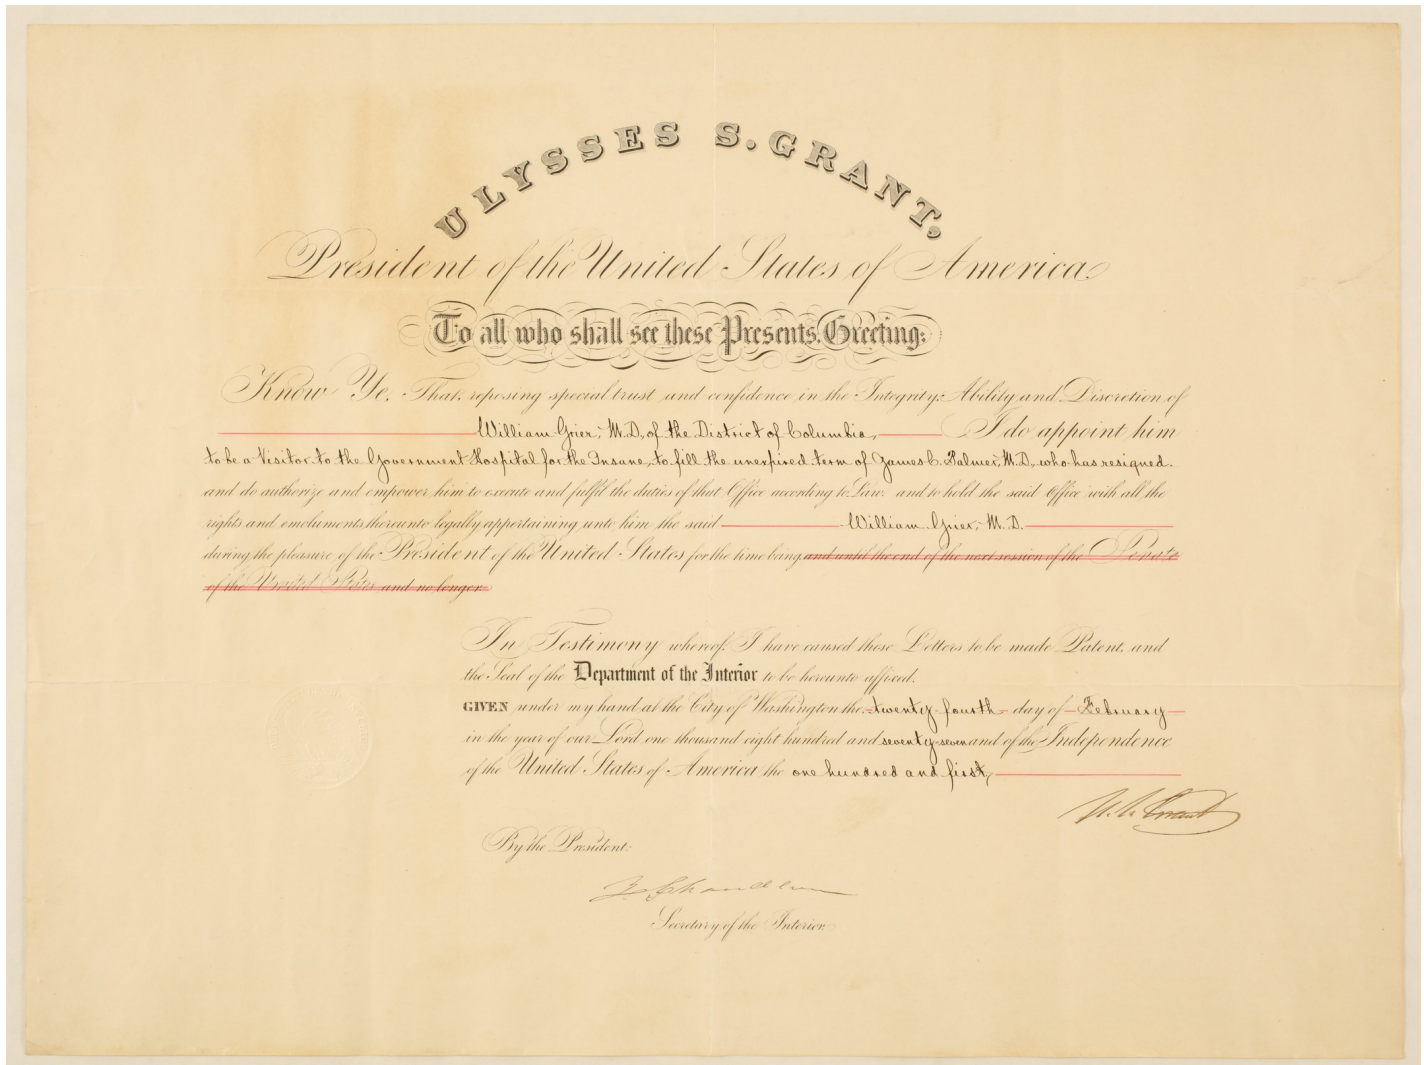 ULYSSES S. GRANT,
President of the United States of America
To all who shall see these Presents, Greeting:
Know Ye, That, reposing special trust and confidence in the Integrity, Ability and Discretion of
William Grier, M.D, of the District of Columbia, I do appoint him
to be a Visitor to the Government Hospital for the Insane, to fill the unexpired term of James C. Palmer, M.D, who has resigned.
and do authorize and empower him to execute and fulfil the duties of that Office according to Law, and to hold the said Office with all the
rights and emoluments thereunto legally appertaining unto him the said William Grier, M.D.
during the pleasure of the President of the United States for the time being and until the end of the next session of the Senate
of the United States and no longer.
In Testimony whereof, I have caused these Letters to be made Patent, and
the Seal of the Department of the Interior to be hereunto affixed.
GIVEN under my hand at the City of Washington the twenty fourth day of February
in the year of our Lord one thousand eight hundred and seventy-seven and of the Independence
of the United States of America the one hundred and first,
U. S. Grant
By the President:
Z. Chandler
Secretary of the Interior.